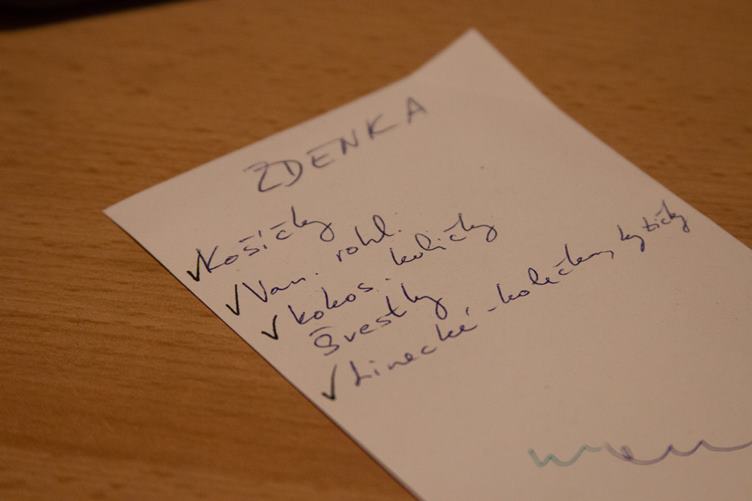 ZDENKA
Košíčky
Van. rohl.
kokos. kuličky
švestky
Linecké - kolečka, kytičky